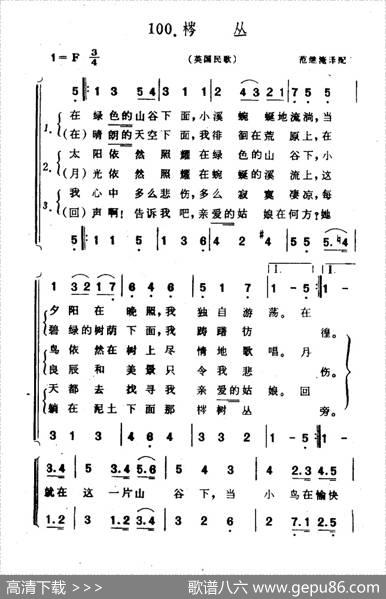 100. 梣 丛
1=F 3/4 (英国民歌) 范继淹译配
5 1 3 5 4 3 1 6 4 2 1 2 3 2 1 7 5 5
1. (在 绿色的山谷下面,小溪 蜿 蜒地流淌,当
(在)晴朗的天空下面,我徘 徊在荒 原上,在
2. 太 阳依 然 照 耀在绿色的山 谷下,小
(月)光依 然 照 耀在蜿 蜒的溪 流上,这
3. 我 心中 多么悲伤,多么 寂 寞 凄凉,每
(回)声啊! 告诉我 吧,亲爱的姑 娘在何方?她
夕 阳 在 晚 照,我 独 自 游 荡。在
碧绿的树荫 下 面,我 踌 躇 彷 徨。
鸟 依 然在 树 上 尽 情 地 歌 唱。月
良 辰 和 美 景 只 令 我 悲 伤。
天 都 去 找 寻 我 亲 爱的姑 娘。回
躺 在 泥土 下 面 那 梣 树 丛 旁。
3 1 3 4 6 4 3 3 2 2 1 - 5 1 -
3.4 5 3.4 5.6 5 4 3 4 2.3 4.5
就在 这 一片山 谷 下,当 小 鸟在愉快
高清下载 >>> 歌谱八六 www.gepu86.com